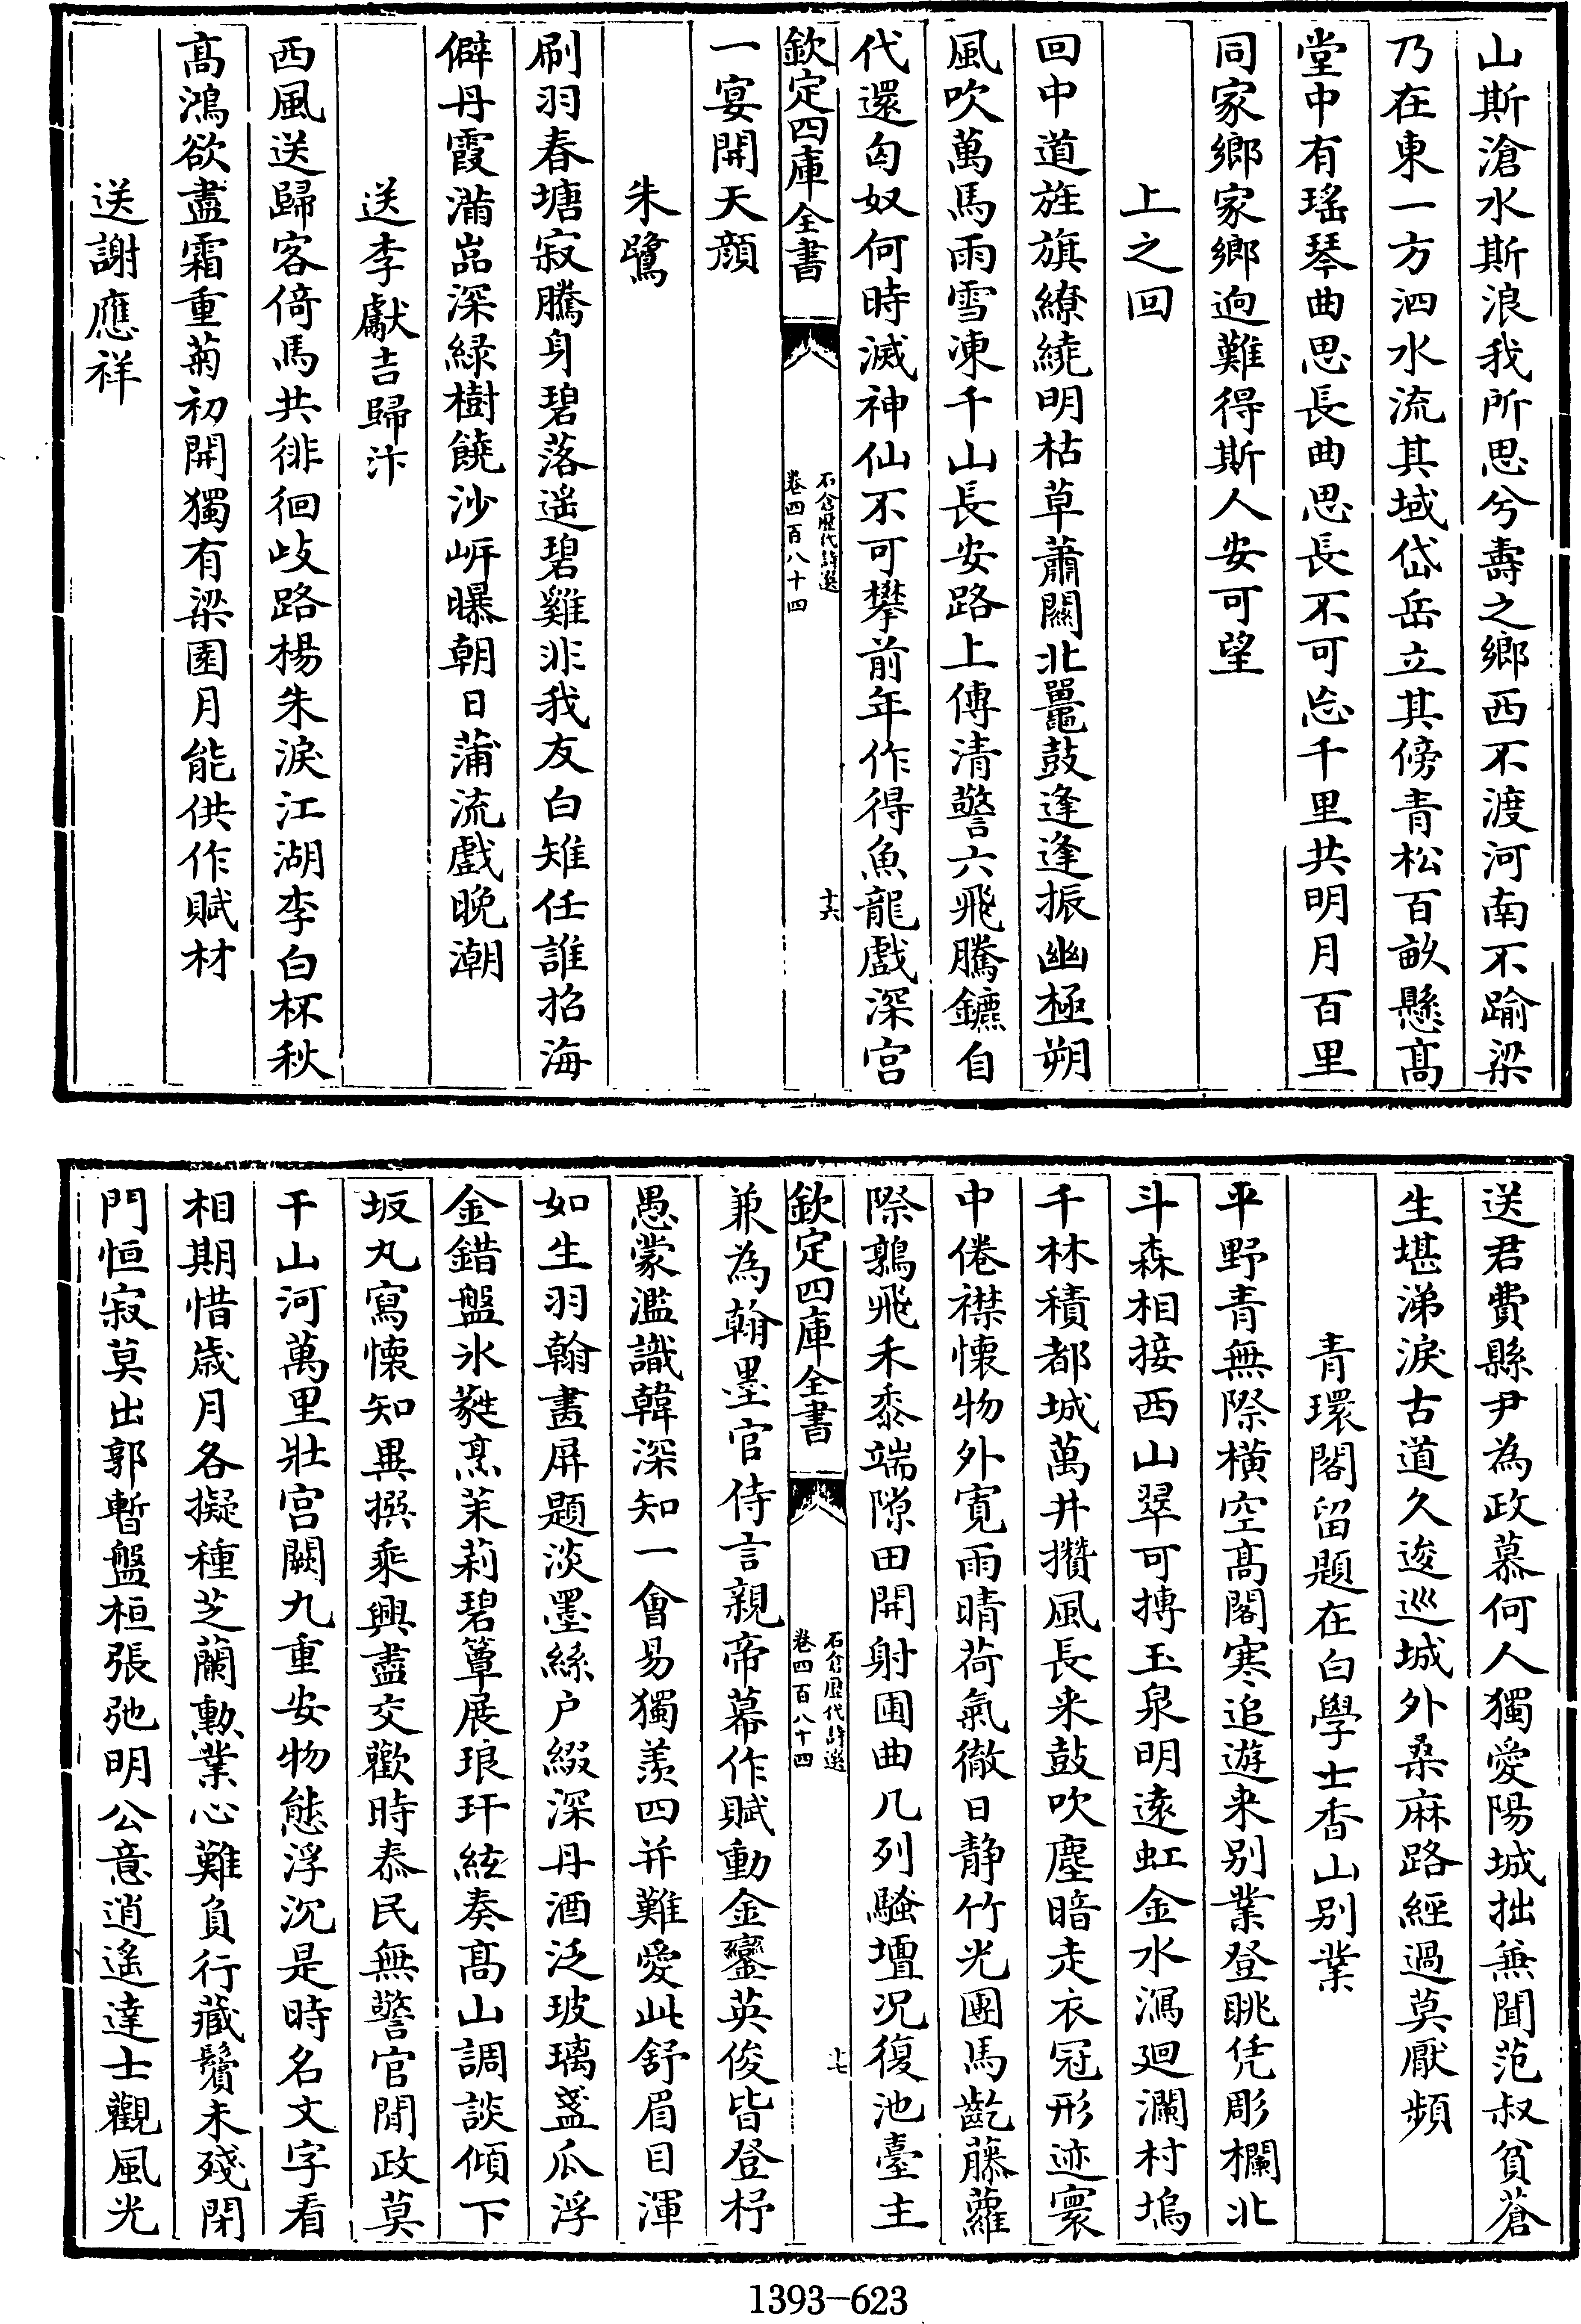 山斯滄水斯浪我所思兮壽之鄉西不渡河南不踰梁
乃在東一方泗水流其域岱岳立其傍青松百畝懸髙
堂中有瑤琴曲思長曲思長不可忘千里共明月百里
同家鄉家鄉逈難得斯人安可望
上之回
回中道旌旗繚繞明枯草蕭關北鼉鼓逢逢振幽極朔
風吹萬馬雨雪凍千山長安路上傳清警六飛騰鑣自
代還匈奴何時滅神仙不可攀前年作得魚龍戲深宫
欽定四庫全書
石倉歴代詩選
卷四百八十四
十六
一宴開天顔
朱鷺
刷羽春塘寂騰身碧落遥碧雞非我友白雉任誰招海
僻丹霞滿嵓深緑樹饒沙岍曝朝日蒲流戲晚潮
送李獻吉歸汴
西風送歸客倚馬共徘徊歧路楊朱淚江湖李白杯秋
髙鴻欲盡霜重菊初開獨有梁園月能供作賦材
送謝應祥
送君費縣尹為政慕何人獨愛陽城拙無聞范叔貧蒼
生堪涕淚古道久逡巡城外桑麻路經過莫厭頻
青環閣留題在白學士香山别業
平野青無際横空髙閣寒追遊来别業登眺凭彫欄北
斗森相接西山翠可摶玉泉明遠虹金水瀉廻瀾村塢
千林積都城萬井攢風長来鼓吹塵暗走衣冠形迹寰
中倦襟懐物外寛雨晴荷氣徹日静竹光團馬齕藤蘿
際鶉飛禾黍端隙田開射圃曲几列騷壇况復池臺主
欽定四庫全書
石倉歴代詩選
卷四百八十四
十七
兼為翰墨官侍言親帝幕作賦動金鑾英俊皆登杼
愚蒙濫識韓深知一會易獨羡四并難愛此舒眉目渾
如生羽翰畵屏題淡墨絲户綴深丹酒泛玻璃盞瓜浮
金錯盤氷蕤烹茉莉碧簟展琅玕絃奏髙山調談傾下
坂丸寫懐知異撰乘興盡交歡時泰民無警官閒政莫
干山河萬里壯宫闕九重安物態浮沉是時名文字看
相期惜歲月各擬種芝蘭勲業心難負行藏鬢未殘閉
門恒寂莫出郭暫盤桓張弛明公意逍遙達士觀風光
1393-623